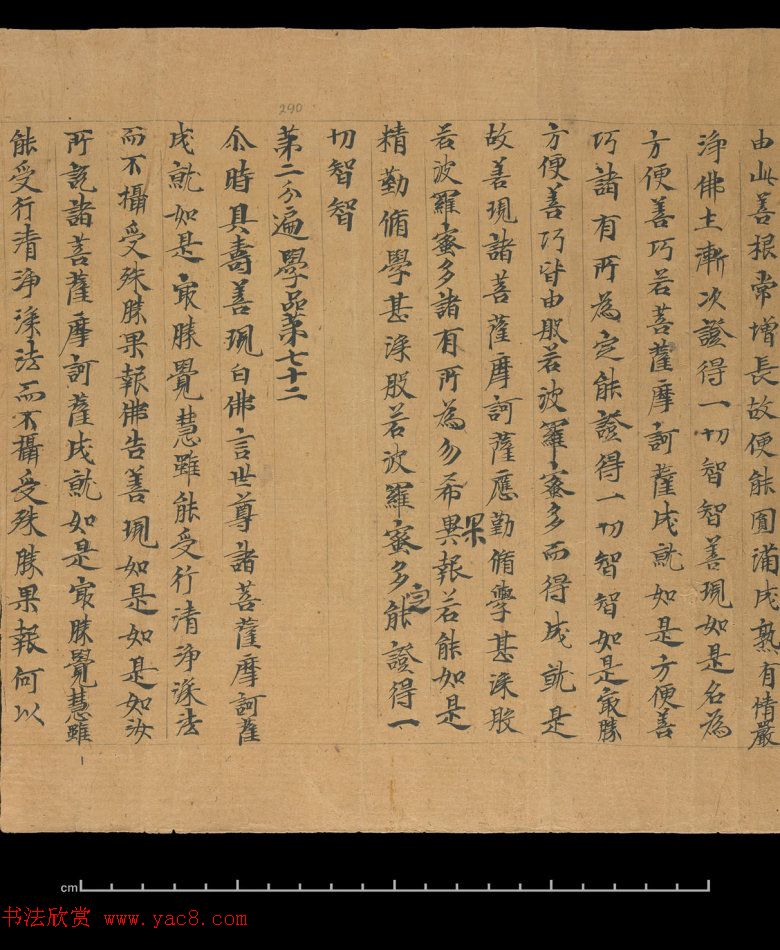 由此善根常增長故便能圓滿成熟有情嚴
淨佛土漸次證得一切智智善現如是名為
方便善巧若菩薩摩訶薩成就如是方便善
巧諸有所為定能證得一切智智如是㝡勝
方便善巧皆由般若波羅蜜多而得成就是
故善現諸菩薩摩訶薩應勤脩學甚深般
若波羅蜜多諸有所為勿希果異報若能如是
精勤脩學甚深般若波羅蜜多定能證得一
切智智
第二分遍學品第七十二
尒時具壽善現白佛言世尊諸菩薩摩訶薩
成就如是㝡勝覺慧雖能受行清淨深法
而不攝受殊勝果報佛告善現如是如是如汝
所說諸菩薩摩訶薩成就如是㝡勝覺慧雖
能受行清淨深法而不攝受殊勝果報何以
290
cm
书法欣赏 www.yac8.com